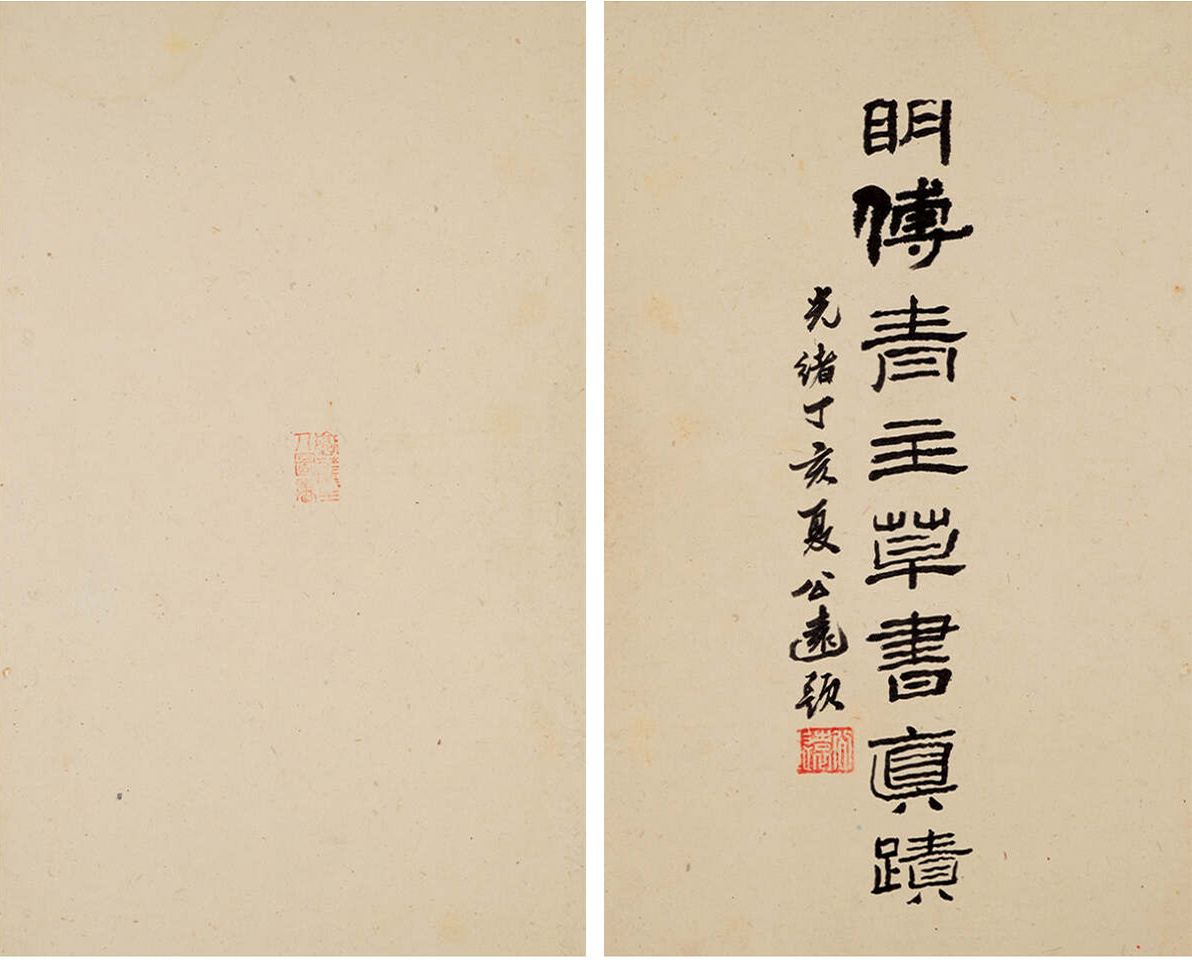 明傅青主草書真蹟
光緒丁亥夏公遠題
公遠